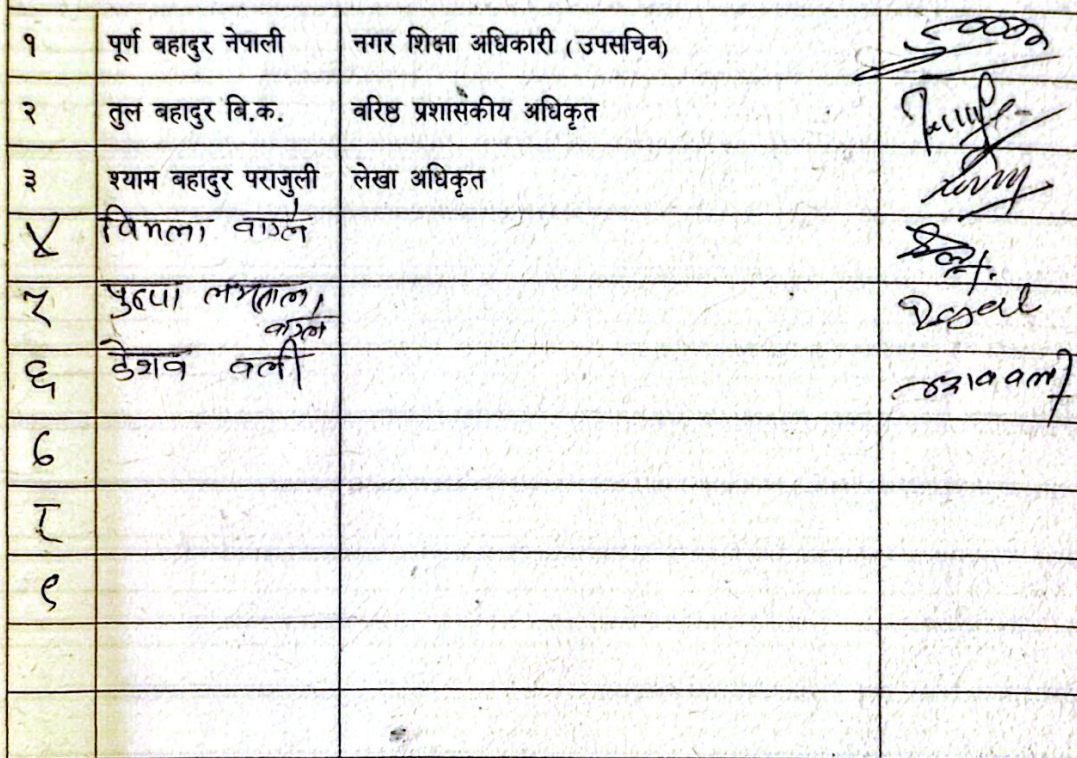 १ पूर्ण बहादुर नेपाली नगर शिक्षा अधिकारी (उपसचिव)
२ तुल बहादुर बि.क. वरिष्ठ प्रशासकीय अधिकृत
३ श्याम बहादुर पराजुली लेखा अधिकृत
४ विमला वाग्ले
५ पुष्पा लम्साल
वाग्ले
६ केशव वली केशव वली
७
८
९